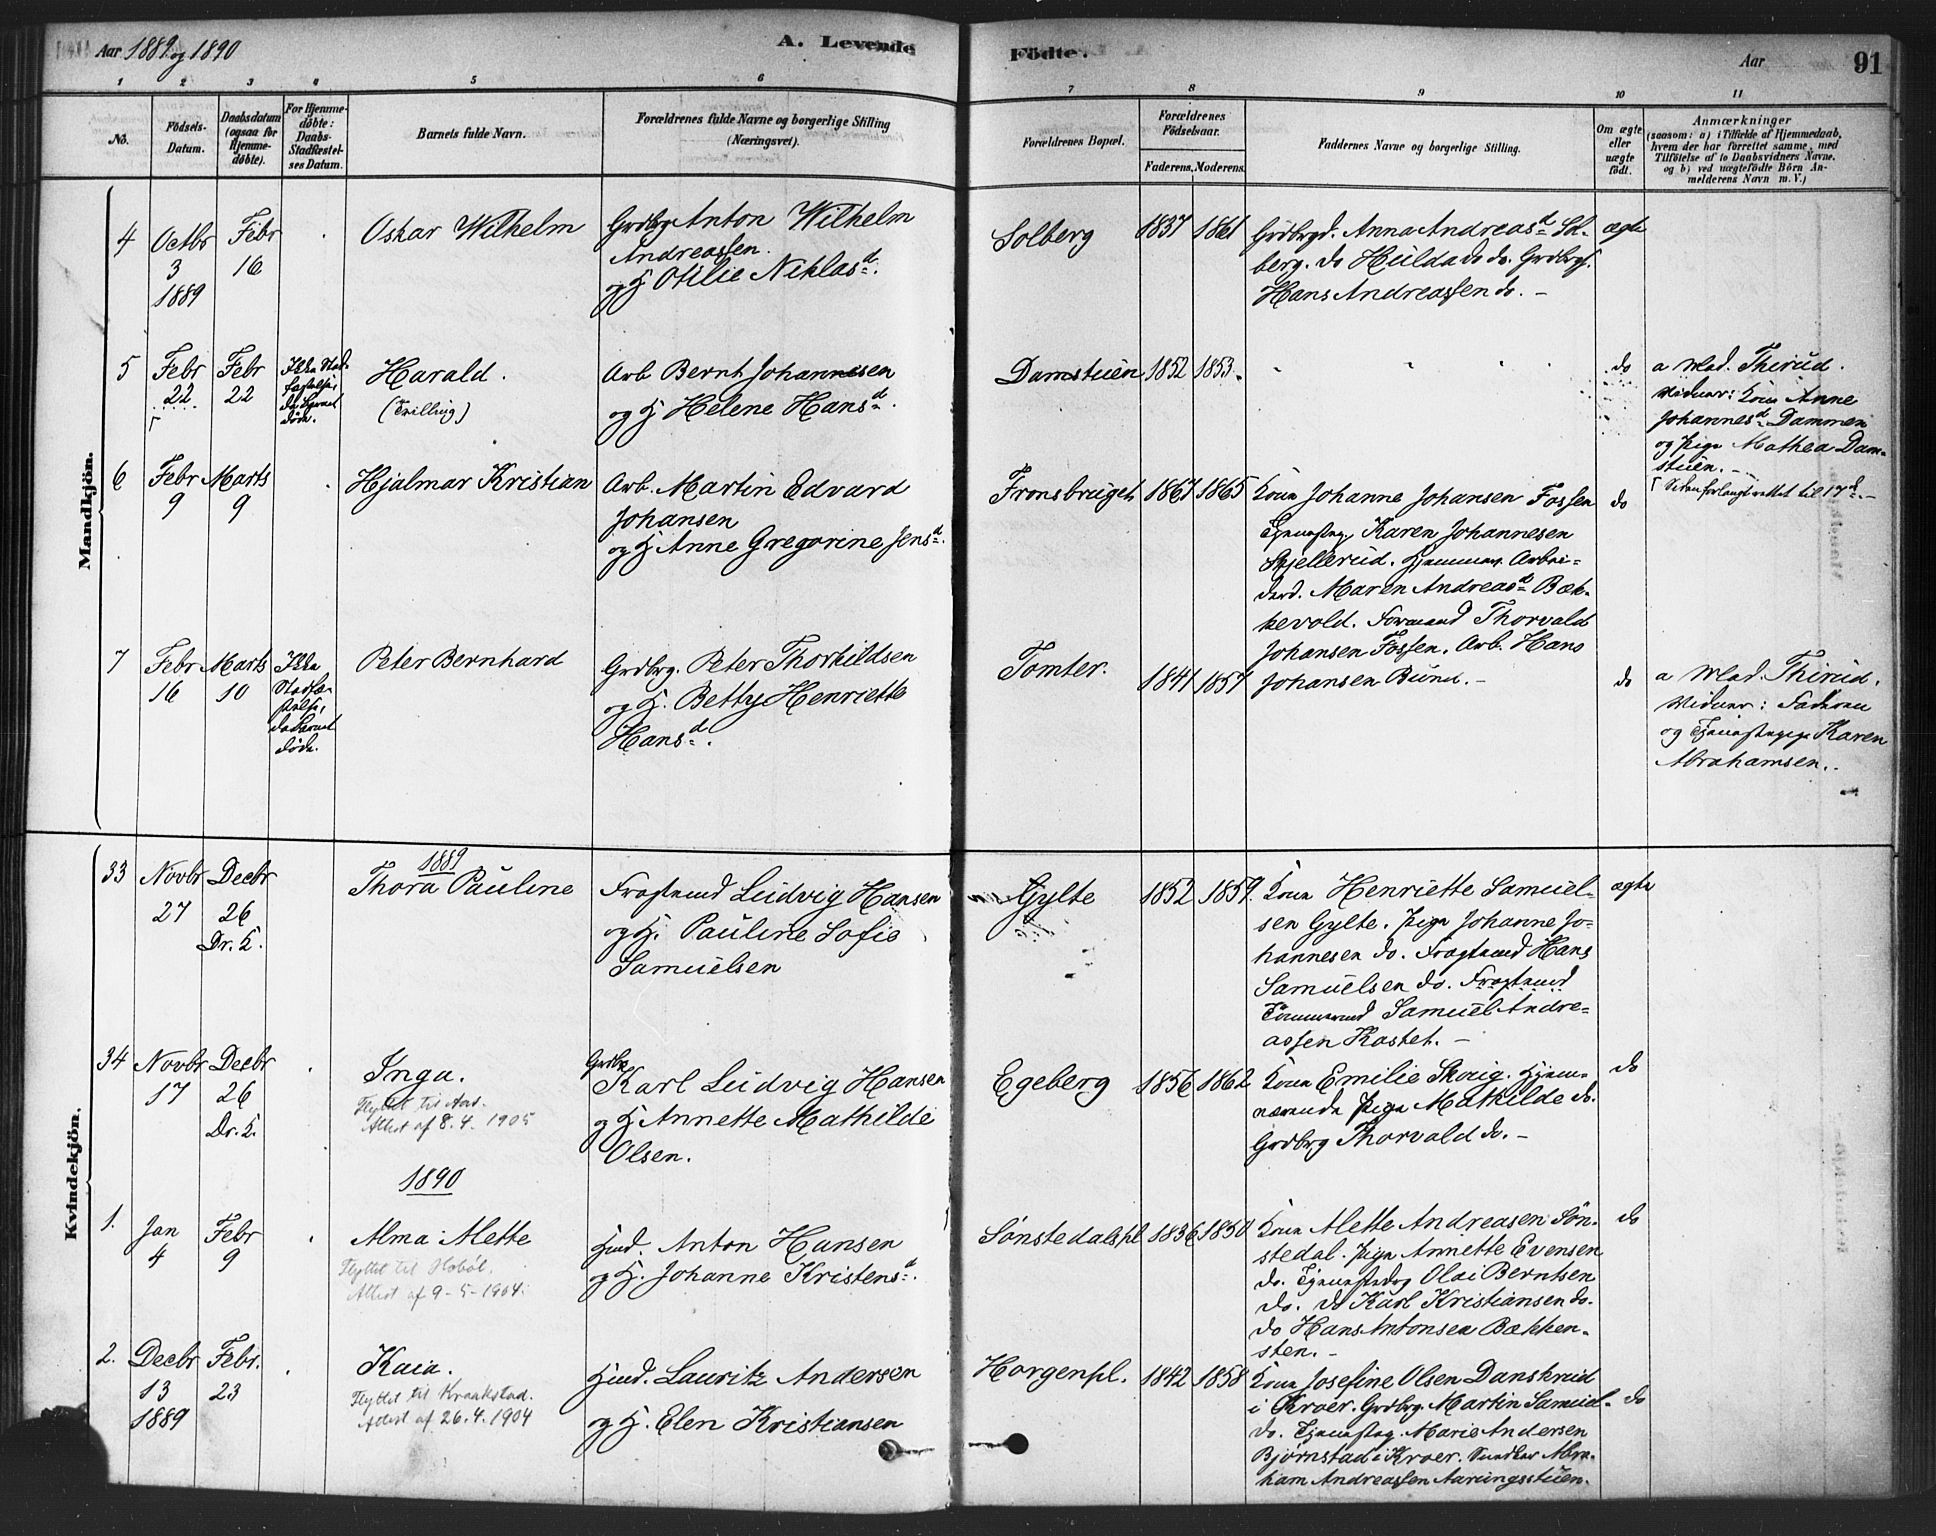 Aar 1889 og 1890
A. Levende
Födte.
Aar
91
1 2 3 4 5 6 7 8 9 10 11
No.
Födsels-
Datum.
Daabsdatum
(ogsaa for
Hjemme-
döbte).
For Hjemme-
döbte:
Daabs-
Stadfæstel-
ses Datum.
Barnets fulde Navn.
Forældrenes fulde Navne og borgerlige Stilling
(Næringsvei).
Forældrenes Bopæl.
Forældrenes
Födselsaar.
Faderens. Moderens.
Faddernes Navne og borgerlige Stilling.
Om ægte
eller
uægte
födt.
Anmærkninger
(saasom: a) i Tilfælde af Hjemmedaab,
hvem der har forrettet samme, med
Tilföielse af to Daabsvidners Navne,
og b) ved uægtefödte Börn An-
melderens Navn m. V.)
Mandkjön.
4
Octbr
3
1889
Febr
16
Oskar Wilhelm
Grdbrg Anton Wilhelm
Andreassen.
og H Otilie Niklasd.
Solberg
1837
1861
Grdbrgd. Anna Andreasd Sol-
berg. do Hulda do do. Grdbrgs.
Hans Andreassen do. –
ægte
5
Febr
22
Febr
22
Ikke Stad-
fæstelse,
da Barnet
døde.
Harald.
(Tvilling)
Arb Bernt Johannesen
og H Helene Hansd.
Damstuen
1852
1853.
do
a Mad. Thirud.
Vidner: Kone Anne
Johannesd Dammen
og Pige Mathea Dam-
stuen. –
Γ Siden forlangt rettet til 17d. –
6
Febr
9
Marts
9
Hjalmar Kristian
Arb. Martin Edvard
Johansen
og H Anne Gregorine Jensd.
Fronsbruget
1867
1865
Kone Johanne Johansen Fossen
Tjenestpg. Karen Johannesen
Skjellerud. Hjemmev. Arbei-
derd. Maren Andreasd Bæk-
kevold. Formand Thorvald
Johansen Fossen. Arb. Hans
Johansen Bund. –
do
7
Febr
16
Marts
10
Ikke
Stadfæ-
stelse,
da Barnet
døde.
Peter Bernhard
Grdbrg. Peter Thorkildsen
og H. Betty Henriette
Hansd.
Tomter.
1841
1857
do
a Mad. Thirud.
Vidner: Faderen
og Tjenestepige Karen
Abrahamsen.
Kvindekjön.
1889
33
Novbr
27
Decbr
26
Dr. K.
Thora Pauline
Fragtemd Ludvig Hansen
og H. Pauline Sofie
Samuelsen
Gylte
1852
1859.
Kone Henriette Samuel-
sen Gylte. Pige Johanne Jo-
hannesen do. Fragtemd Hans
Samuelsen do. Fragtemd
Tømmermd Samuel Andre-
assen Kastet. –
ægte
34
Novbr
17
Decbr
26
Dr. K.
Inga.
Flyttet til Aas.
Attest af 8. 4. 1905
Grdbr
Karl Ludvig Hansen
og H Annette Mathilde
Olsen.
Egeberg
1856
1862
Kone Emilie Skoug. Hjem-
mevende Pige Mathilde do.
Grdbrg Thorvald do. –
do
1890
1.
Jan
4
Febr
9
Alma Alette
Flyttet til Hobøl.
Attest af 9-5-1904.
Hmd. Anton Hansen
og H. Johanne Kristensd.
Sønstedalspl
1836
1850
Kone Alette Andreasen Søn-
stedal. Pige Annette Evensen
do. Tjenestedrg Olai Berntsen
do. do Karl Kristiansen do.
do Hans Antonsen Bækken-
sten. –
do
2.
Decbr
13
1889
Febr.
23
Kaia.
Flyttet til Kraakstad.
Attest af 26.4.1904
Hmd. Lauritz Andersen
og H. Elen Kristiansen
Horgenpl.
1842
1858
Kone Josefine Olsen Danskrud
i Kroer. Grdbrg. Martin Samuel-
do. Tjenestpg. Marie Andersen
Bjørnstad i Kroer. Snedker Abra-
ham Andreassen Aarungsstuen.
do